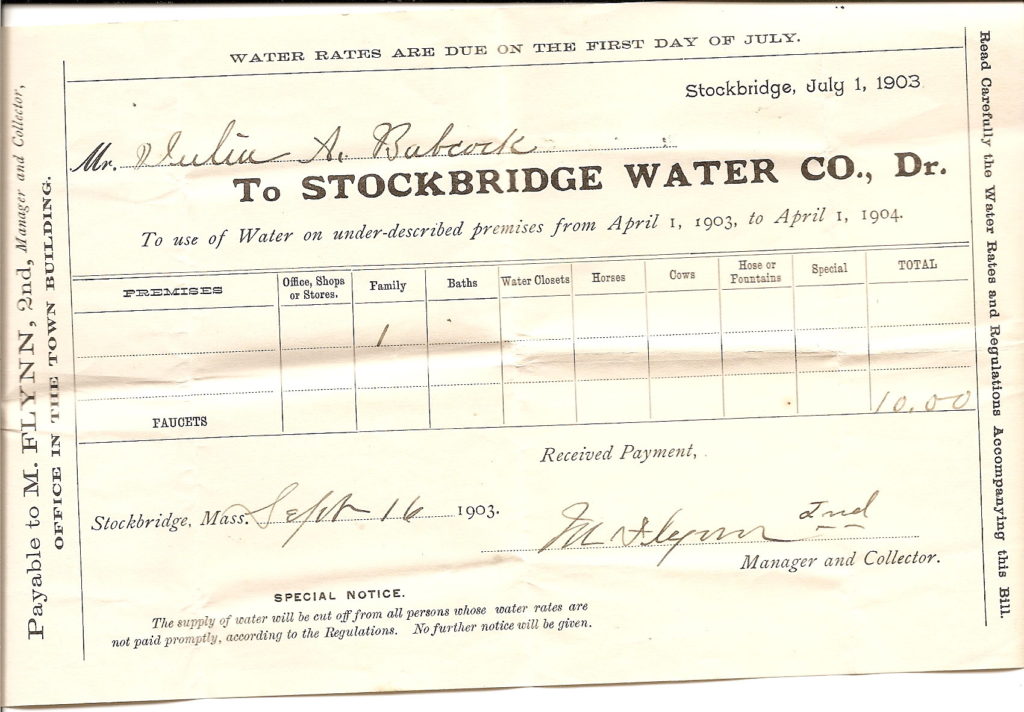 WATER RATES ARE DUE ON THE FIRST DAY OF JULY.
Stockbridge, July 1, 1903
Mr. Julia A. Babcock
To STOCKBRIDGE WATER CO., Dr.
To use of Water on under-described premises from April 1, 1903, to April 1, 1904.
PREMISES Office, Shops or Stores. Family Baths Water Closets Horses Cows Hose or Fountains Special TOTAL
1
FAUCETS 10.00
Received Payment,
Stockbridge, Mass. Sept 16 1903.
M Flynn 2nd
Manager and Collector.
SPECIAL NOTICE.
The supply of water will be cut off from all persons whose water rates are
not paid promptly, according to the Regulations. No further notice will be given.
Payable to M. FLYNN, 2nd, Manager and Collector,
OFFICE IN THE TOWN BUILDING.
Read Carefully the Water Rates and Regulations Accompanying this Bill.